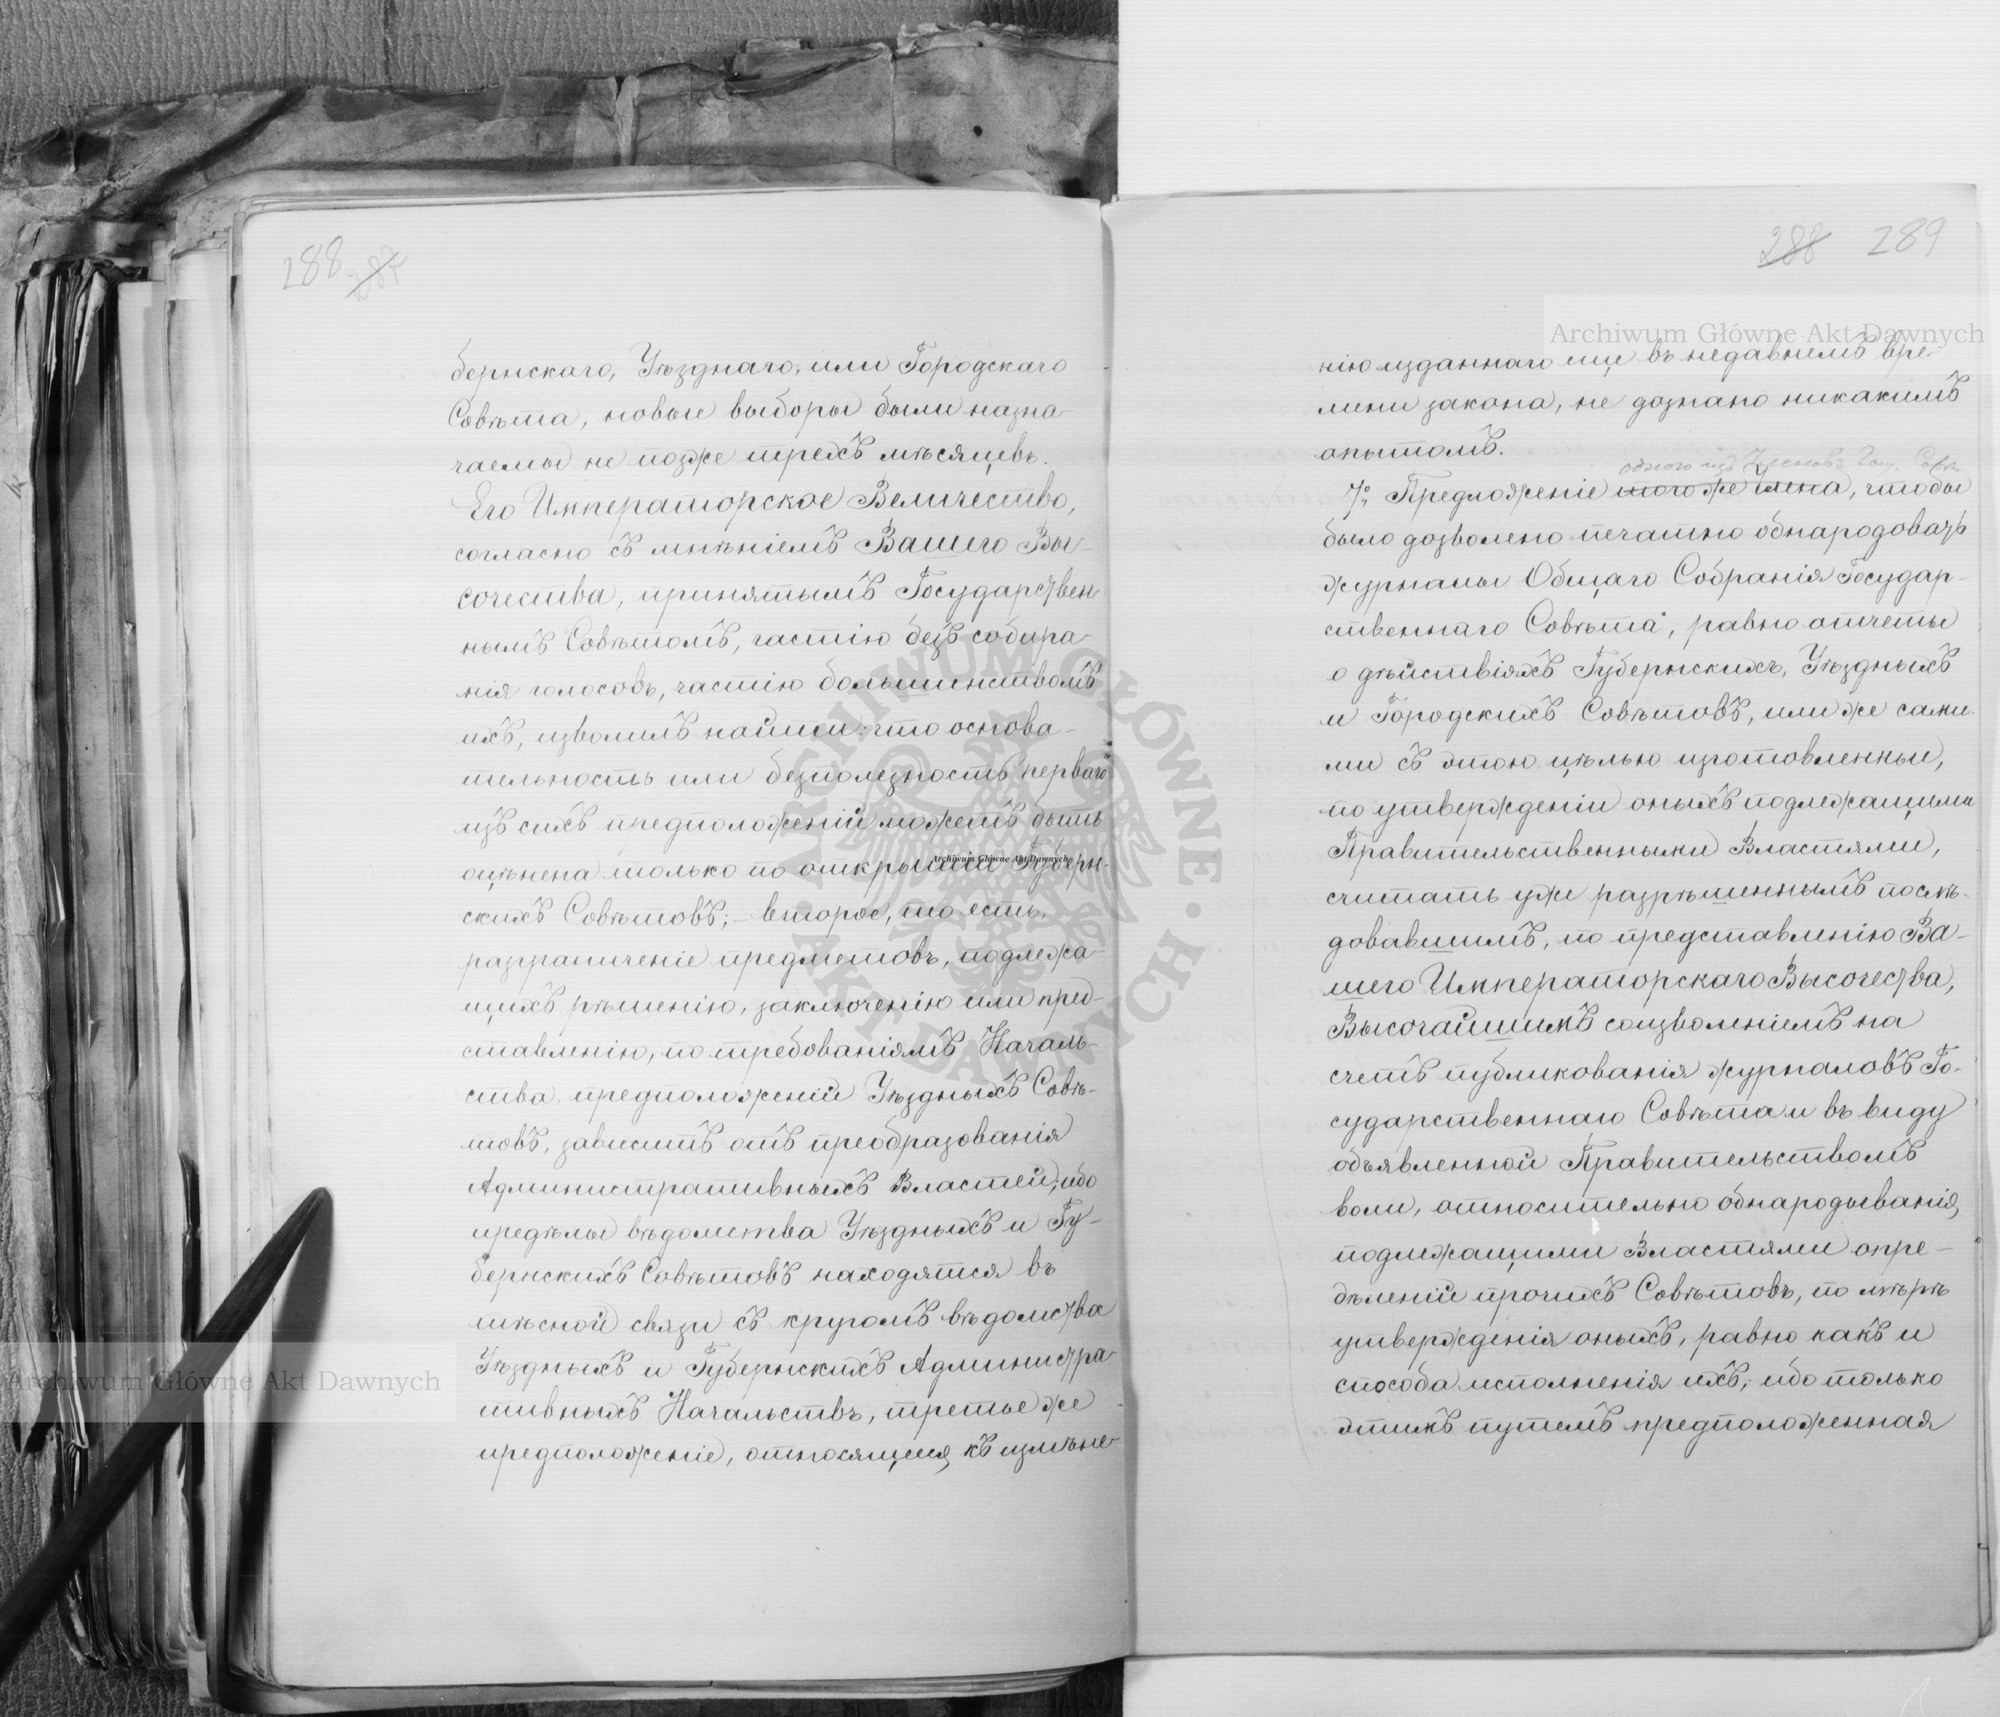 288 287
бернскаго, Уѣзднаго, или Городскаго
Совѣта, новые выборы были назна-
чаемы не позже трехъ мѣсяцевъ.
Его Императорское Величество,
согласно съ мнѣніемъ Вашего Вы-
сочества, принятымъ Государствен-
нымъ Совѣтомъ, частію безъ собира-
нія голосовъ, частію большинствомъ
ихъ, изволилъ найти: что основа-
тельность или безполезность перваго
изъ сихъ предположеній можетъ быть
оцѣнена только по открытіи Губерн-
скихъ Совѣтовъ; – второе, то есть
разграниченіе предметовъ, подлежа-
щихъ рѣшенію, заключенію или пред-
ставленію, по требованіямъ Началь-
ства, предположеній Уѣздныхъ Совѣ-
товъ, зависитъ отъ преобразованія
Административныхъ Властей, ибо
предѣлы вѣдомства Уѣздныхъ и Гу-
бернскихъ Совѣтовъ находятся въ
тѣсной связи съ кругомъ вѣдомства
Уѣздныхъ и Губернскихъ Администра-
тивныхъ Начальствъ, третье же
предположеніе, относящееся къ измѣне-
288 289
Archiwum Główne Akt Dawnych
нію изданнаго еще въ недавнемъ вре-
мени закона, не дознано никакимъ
опытомъ.
одного изъ Членовъ Гос. Совѣ
7º Предложеніе того же члена, чтобы
было дозволено печатно обнародовать
журналы Общаго Собранія Государ-
ственнаго Совѣта, равно отчеты
о дѣйствіяхъ Губернскихъ, Уѣздныхъ
и Городскихъ Совѣтовъ, или же сами-
ми съ этою цѣлью изготовленные,
по утвержденіи оныхъ подлежащими
Правительственными Властями,
считать уже разрѣшеннымъ послѣ-
довавшимъ, по представленію Ва-
шего Императорскаго Высочества,
Высочайшимъ соизволеніемъ на
счетъ публикованія журналовъ Го-
сударственнаго Совѣта и въ виду
объявленной Правительствомъ
воли, относительно обнародыванія,
подлежащими Властями опре-
дѣленій прочихъ Совѣтовъ, по мѣрѣ
утвержденія оныхъ, равно какъ и
способа исполненія ихъ; ибо только
этимъ путемъ предположенная
Archiwum Główne Akt Dawnych
Archiwum Główne Akt Dawnych
ARCHIWUM GŁÓWNE AKT DAWNYCH